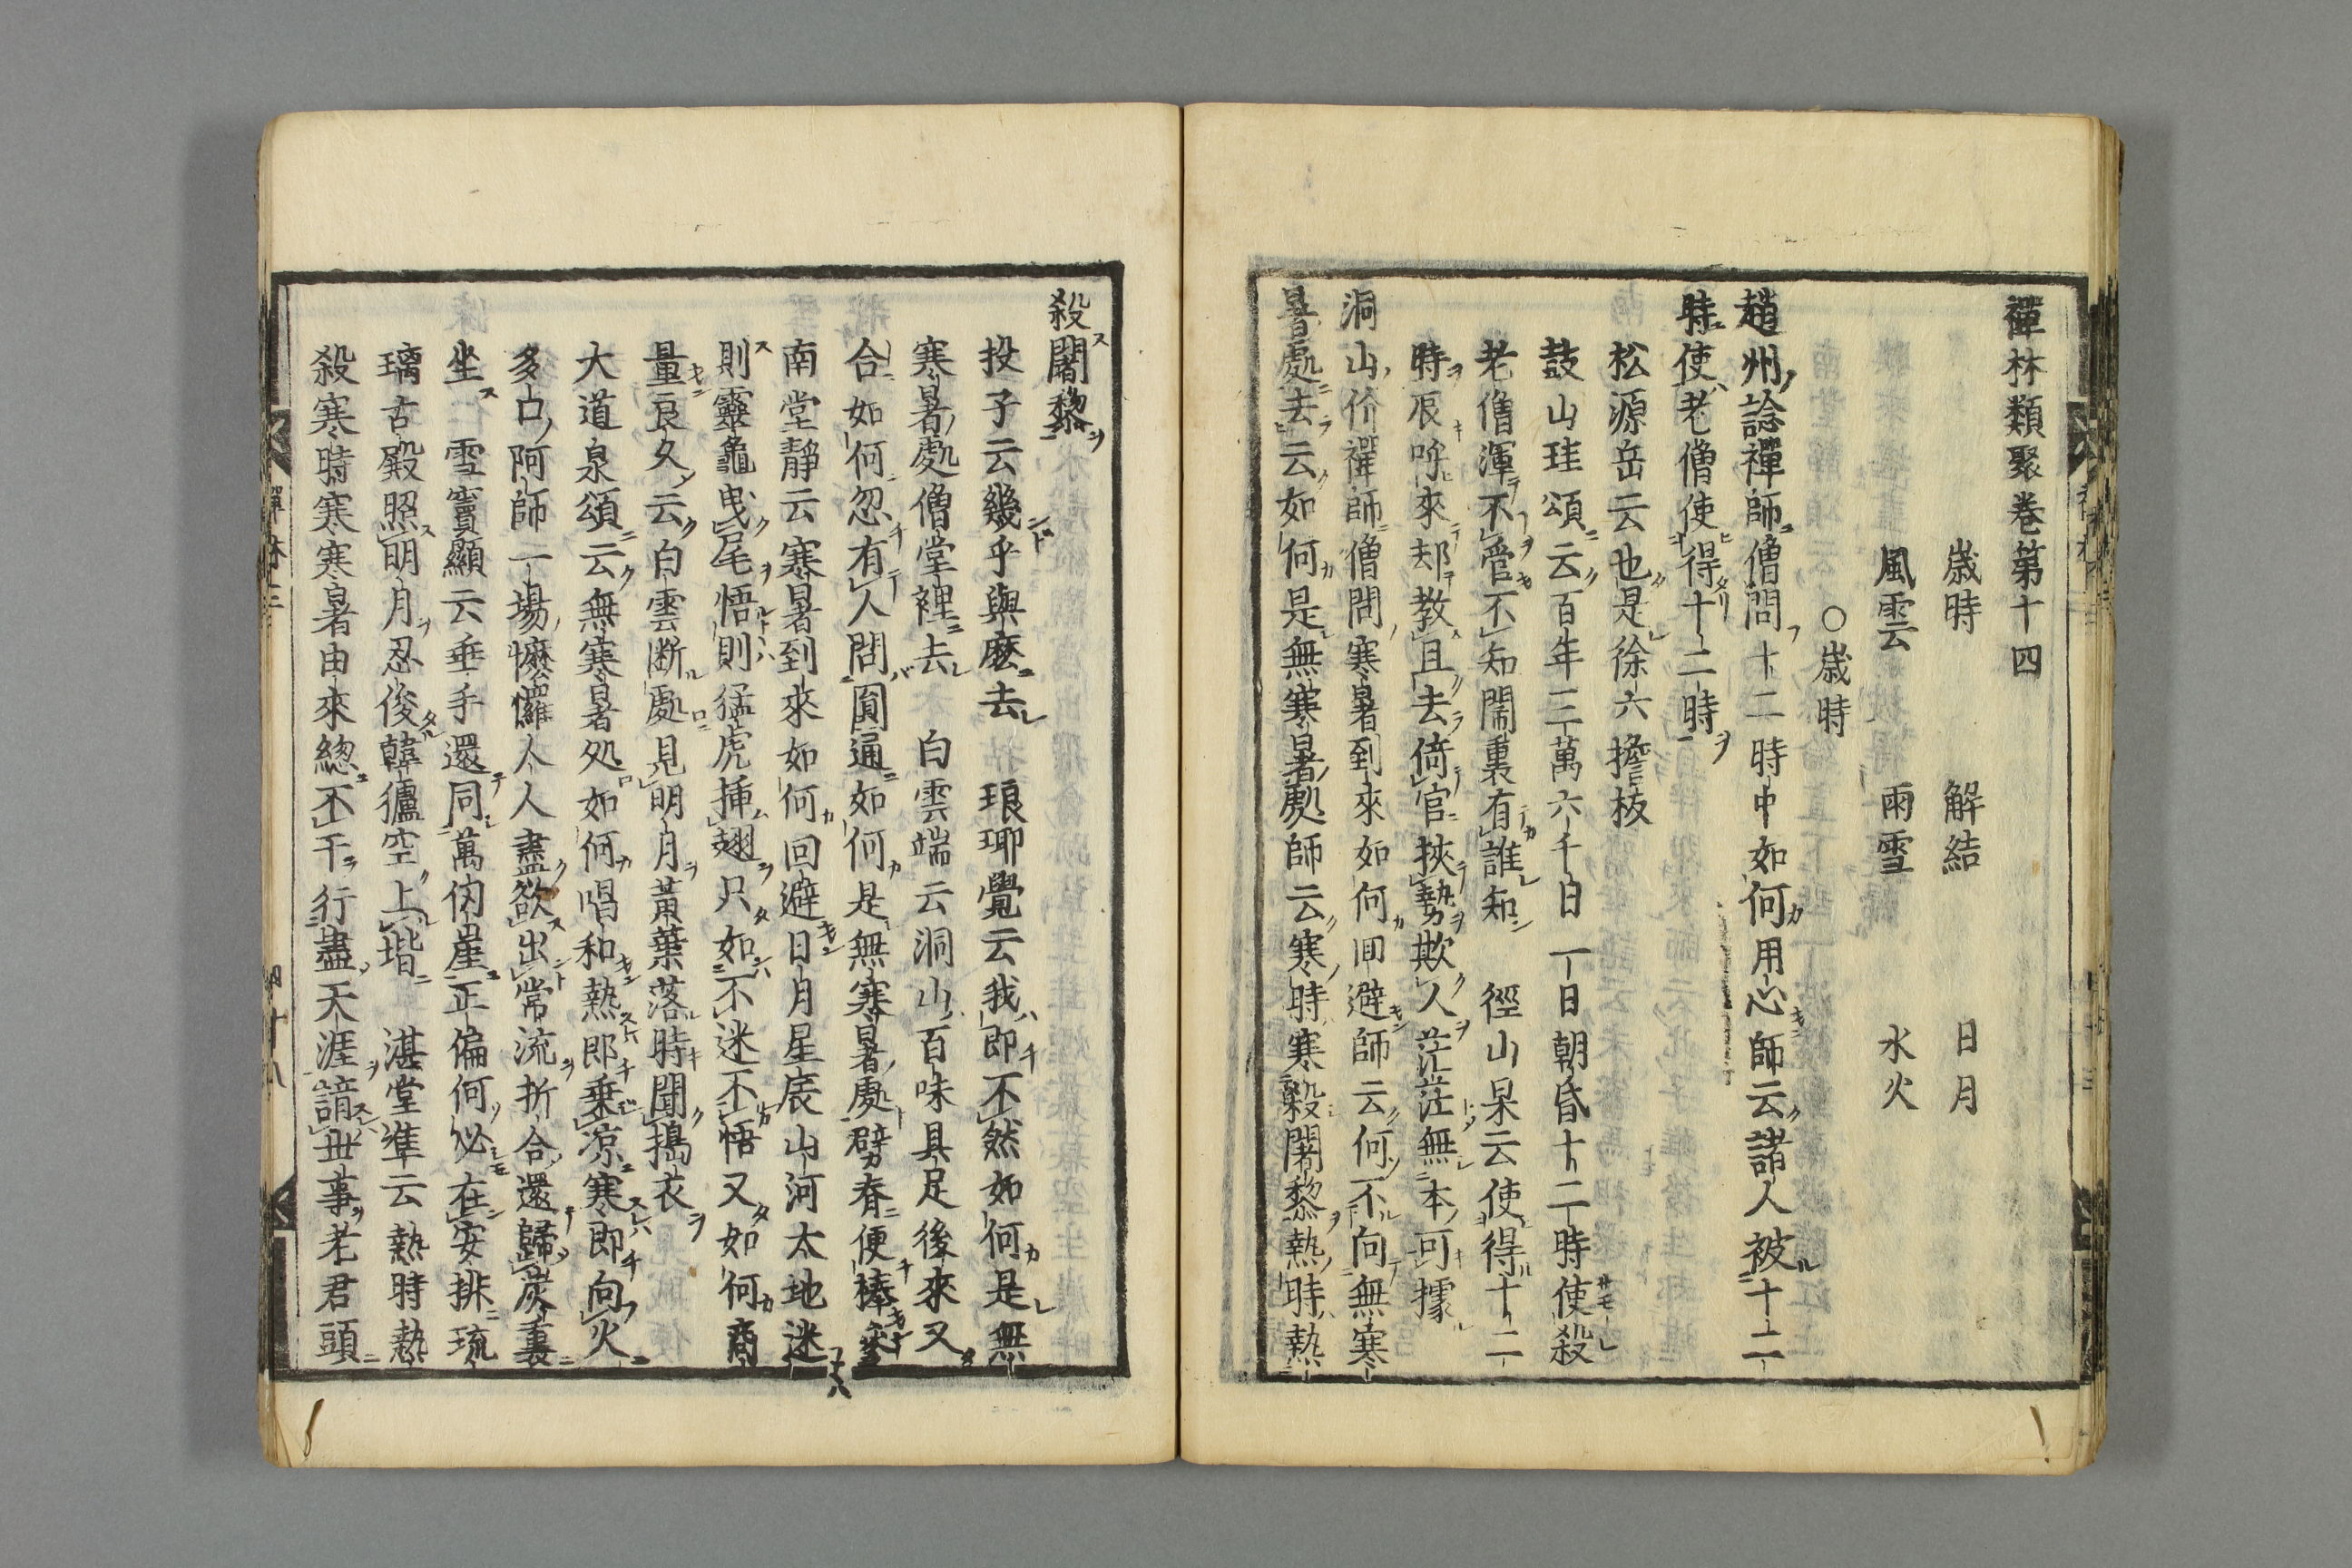 禪林類聚卷第十四
歳時　解結　日月
風雲　雨雪　水火
○歳時
趙州諗禪師僧問十二時中如何用心師云諸人被十二
時使老僧使得十二時
松源岳云也是徐六擔板
鼓山珪頌云百年三萬六千日一日朝昏十二時使殺
老僧渾不管不知閙裏有誰知　徑山杲云使得十二
時辰呼來却教且去倚官挾勢欺人茫茫無本可據
洞山价禪師僧問寒暑到來如何回避師云何不向無寒
暑處去云如何是無寒暑處師云寒時寒殺闍黎熱時熱
殺闍黎
投子云幾乎與麽去　琅瑘覺云我即不然如何是無
寒暑處僧堂裡去　白雲端云洞山百味具足後來又
合如何忽有人問圓通如何是無寒暑處劈脊便棒
南堂靜云寒暑到來如何回避日月星辰山河大地迷
則靈龜曳尾悟則猛虎揷翅只如不迷不悟又如何商
量良久云白雲断處見明月黃葉落時聞搗衣
大道泉頌云無寒暑処如何唱和熱即乗凉寒即向火
多口阿師一場㦬㦬人人盡欲出常流折合還歸炭裏
坐　雪竇顯云垂手還同萬仞崖正偏何必在安排琉
璃古殿照明月忍俊韓獹空上堦　湛堂準云熱時熱
殺寒時寒寒暑由來総不干行盡天涯諳丗事老君頭